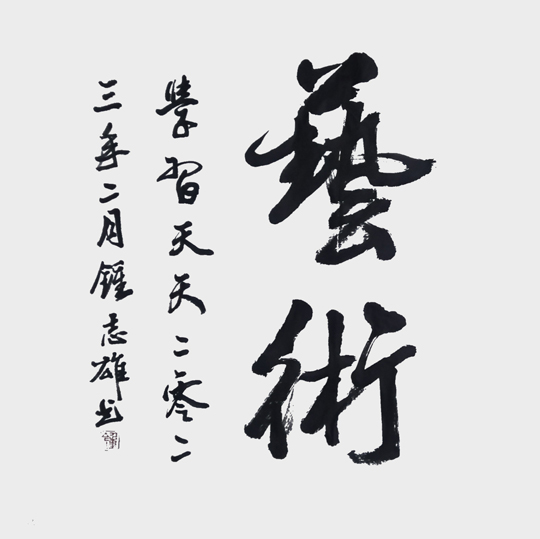 藝術
學習天天二零二
三年二月鍾志雄书